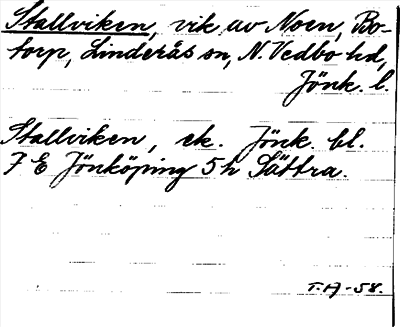 Stallviken, vik av Noen, Bo-
torp, Linderås sn, N. Vedbo hd,
Jönk. l.
Stallviken, ek. Jönk. bl.
7 E Jönköping 5 h Sättra.
T.A-58.